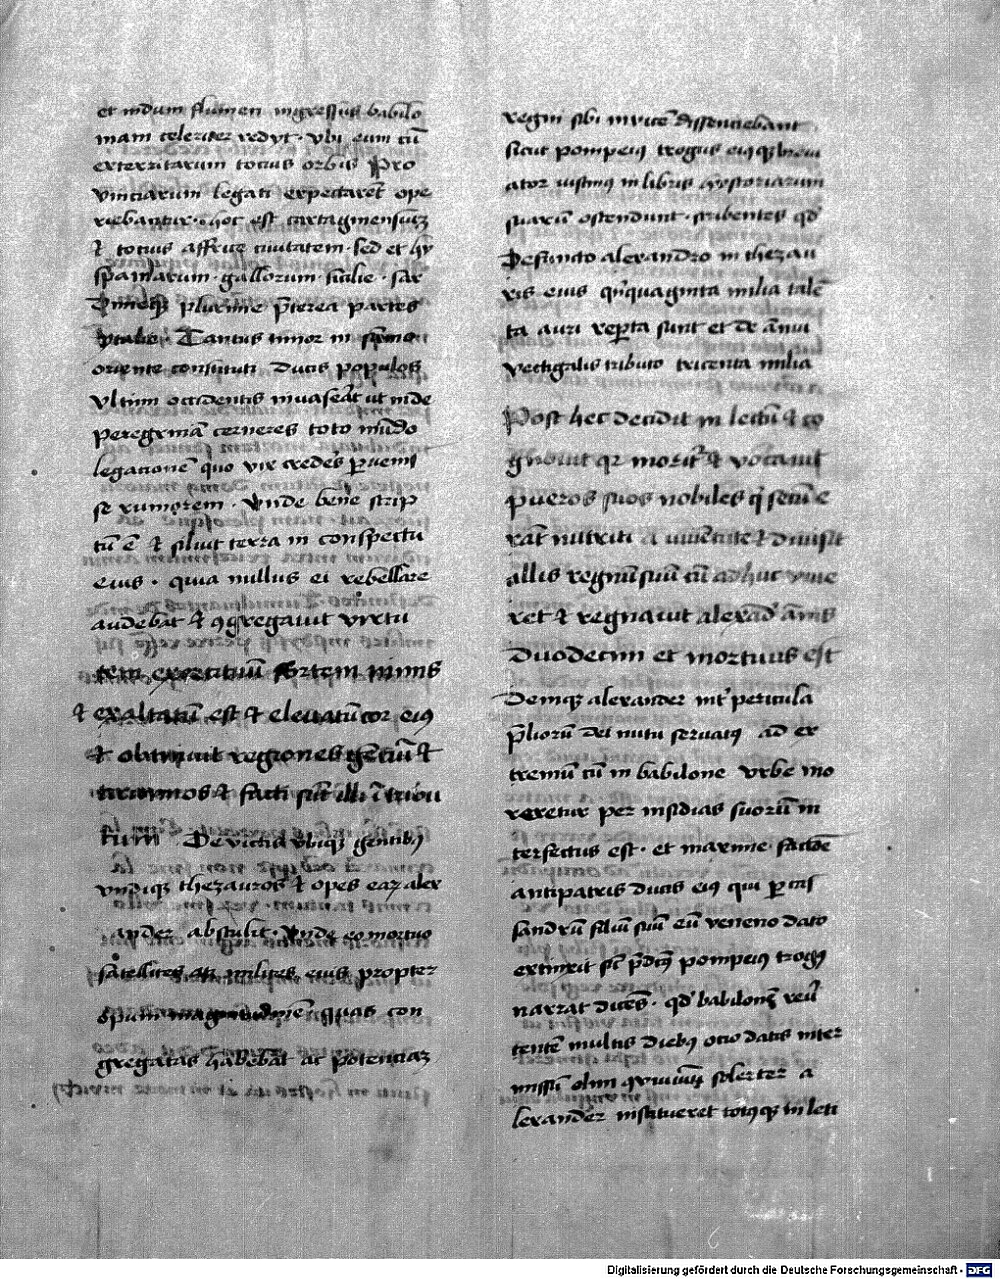 et indum flumen ingressus babilo
niam celeriter redyt · vbi eum cū
exterritarum totius orbis Pro
vinciarum legati expectaret ope
riebantur · hoc est cartaginensiuꝫ
⁊ totius affrice ciuitatem · sed et hy
spaniarum · gallorum · sicilie · sar
Dinieqꝫ plurime p̄terea partes
ytalie · Tantus timor in sum̄o
oriente constituti Ducis populos
vltimi occidentis inuaserat ut inde
peregrinā cerneres toto mūdo
legationē quo vix credes ꝑueni
se rumorem · Vnde bene scrip
tū ē ⁊ siluit terra in conspectu
eius · quia nullus ei rebellare
audebat ⁊ ꝯgregauit virtu
tem exercituū fortem nimis
⁊ exaltatū est ⁊ eleuatū cor eiꝰ
⁊ obtinuit regiones gentiū ⁊
tirannos ⁊ facti sūt illi ī tribu
tum Devictis vbiqꝫ gentibꝰ
vndiqꝫ thezauros ⁊ opes eaꝝ alex
ander abstulit · Vnde eo mortuo
satellites milites eius propter
opum quas con
gregatas habebāt ac potenciaꝫ
regni sibi inuicē dissenciebant
sicut pompeiꝰ trogus eiꝰqꝫ breui
ator iustinꝰ in libris hystoriarum
suarū ostendunt · scribentes qd'
Defuncto alexandro in thezau
ris eius qn̄quaginta milia talē
ta auri reperta sunt et de ānui
vectigalis tributo tricenta milia
Post hec decidit in lectū ⁊ co
gnouit qr moritʳ ⁊ vocauit
pueros suos nobiles q̄ secū e
rāt nutriti a iuuētute ⁊ diuisit
allis regnū suū cū adhuc viue
ret ⁊ ⁊ regnauit alexād' ānis
Duodecim et mortuus est
Deniqꝫ alexander int' pericula
p̄liorū dei nutu seruatꝰ ad ex
tremū cū in babilone vrbe mo
reretur per insidias suorū in
terfectus est · et maxime factōe
antipatris Ducis eiꝰ qui ꝑ cas
sandrū filiū suū eū veneno dato
extinxit sic p̄dc̄ꝰ pompeiꝰ trogꝰ
narrat dicēs · qd' babilonē reū
tentē multis Diebꝰ ocio datis inter
missū olim ꝯviuiū solerter a
lexander institueret totꝰqꝫ in leti
Digitalisierung gefördert durch die Deutsche Forschungsgemeinschaft - DFG